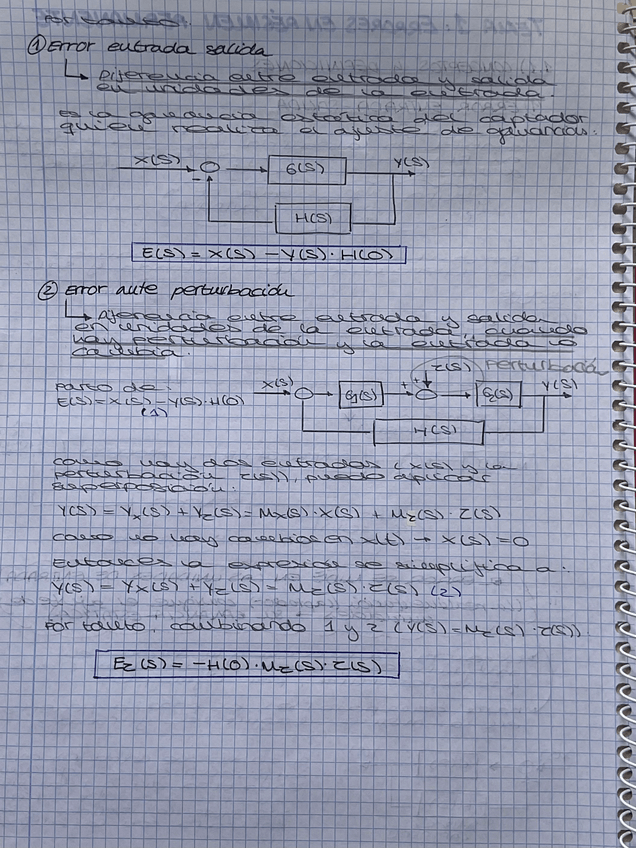 Por
① Error entrada salida
↳ Diferencia entre entrada y salida
en unidades de la entrada.
es la ganancia estática del captador
quien realiza el ajuste de ganancias.
X(S)
G(S)
Y(S)
-
H(S)
E(S) = X(S) - Y(S)·H(0)
② Error ante perturbación
↳ Diferencia entre entrada y salida
en unidades de la entrada, cuando
hay perturbación y la entrada no
cambia.
Z(S) perturbación
Parto de:
E(S)=X(S)-Y(S)·H(0)
(1)
X(S)
G1(S)
+
+
G2(S)
Y(S)
H(S)
como hay dos entradas (X(S) y la
perturbación Z(S)), puedo aplicar
superposición.
Y(S) = Yx(S) + Yz(S) = Mx(S)·X(S) + Mz(S)·Z(S)
como no hay cambios en x(t) → X(S)=0
Entonces la expresión se simplifica a:
Y(S) = Yx(S) + Yz(S) = Mz(S)·Z(S) (2)
Por tanto, combinando 1 y 2 (Y(S)=Mz(S)·Z(S))
Ez(S) = -H(0)·Mz(S)·Z(S)